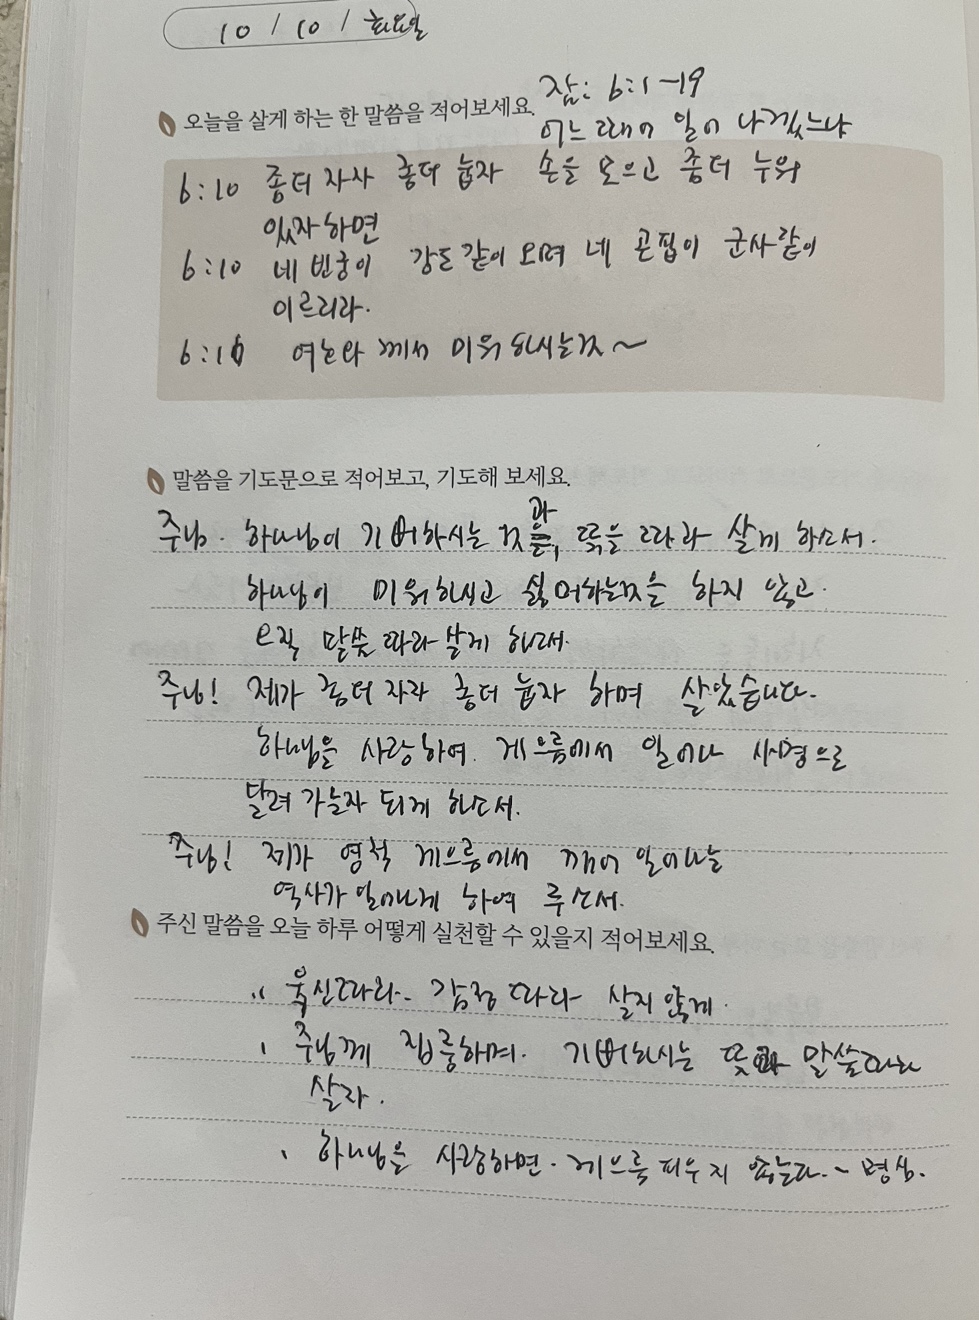 10 / 10 / 화요일
잠: 6:1-19
오늘을 살게 하는 한 말씀을 적어보세요.
어느 때에 일어 나겠느냐
6:10 좀더 자자 좀더 눕자 손을 모으고 좀더 누워
있자하면
6:10 네 빈궁이 강도같이 오며 네 곤핍이 군사같이
이르리라.
6:16 여호와 께서 미워 하시는것~
말씀을 기도문으로 적어보고, 기도해 보세요.
주님. 하나님이 기뻐하시는 것과 뜻을 따라 살게 하소서.
하나님이 미워하시고 싫어하는것을 하지 않고.
오직 말씀 따라 살게 하소서.
주님! 제가 좀더 자자 좀더 눕자 하며 살았습니다.
하나님을 사랑하여. 게으름에서 일어나 사명으로
달려 가는자 되게 하소서.
주님! 제가 영적 게으름에서 깨어 일어나는
역사가 일어나게 하여 주소서.
주신 말씀을 오늘 하루 어떻게 실천할 수 있을지 적어보세요.
육신따라. 감정 따라 살지 않게.
주님께 집중하며. 기뻐하시는 뜻과 말씀따라
살자.
하나님을 사랑하면. 게으륵 피우지 않는다.~ 명심.